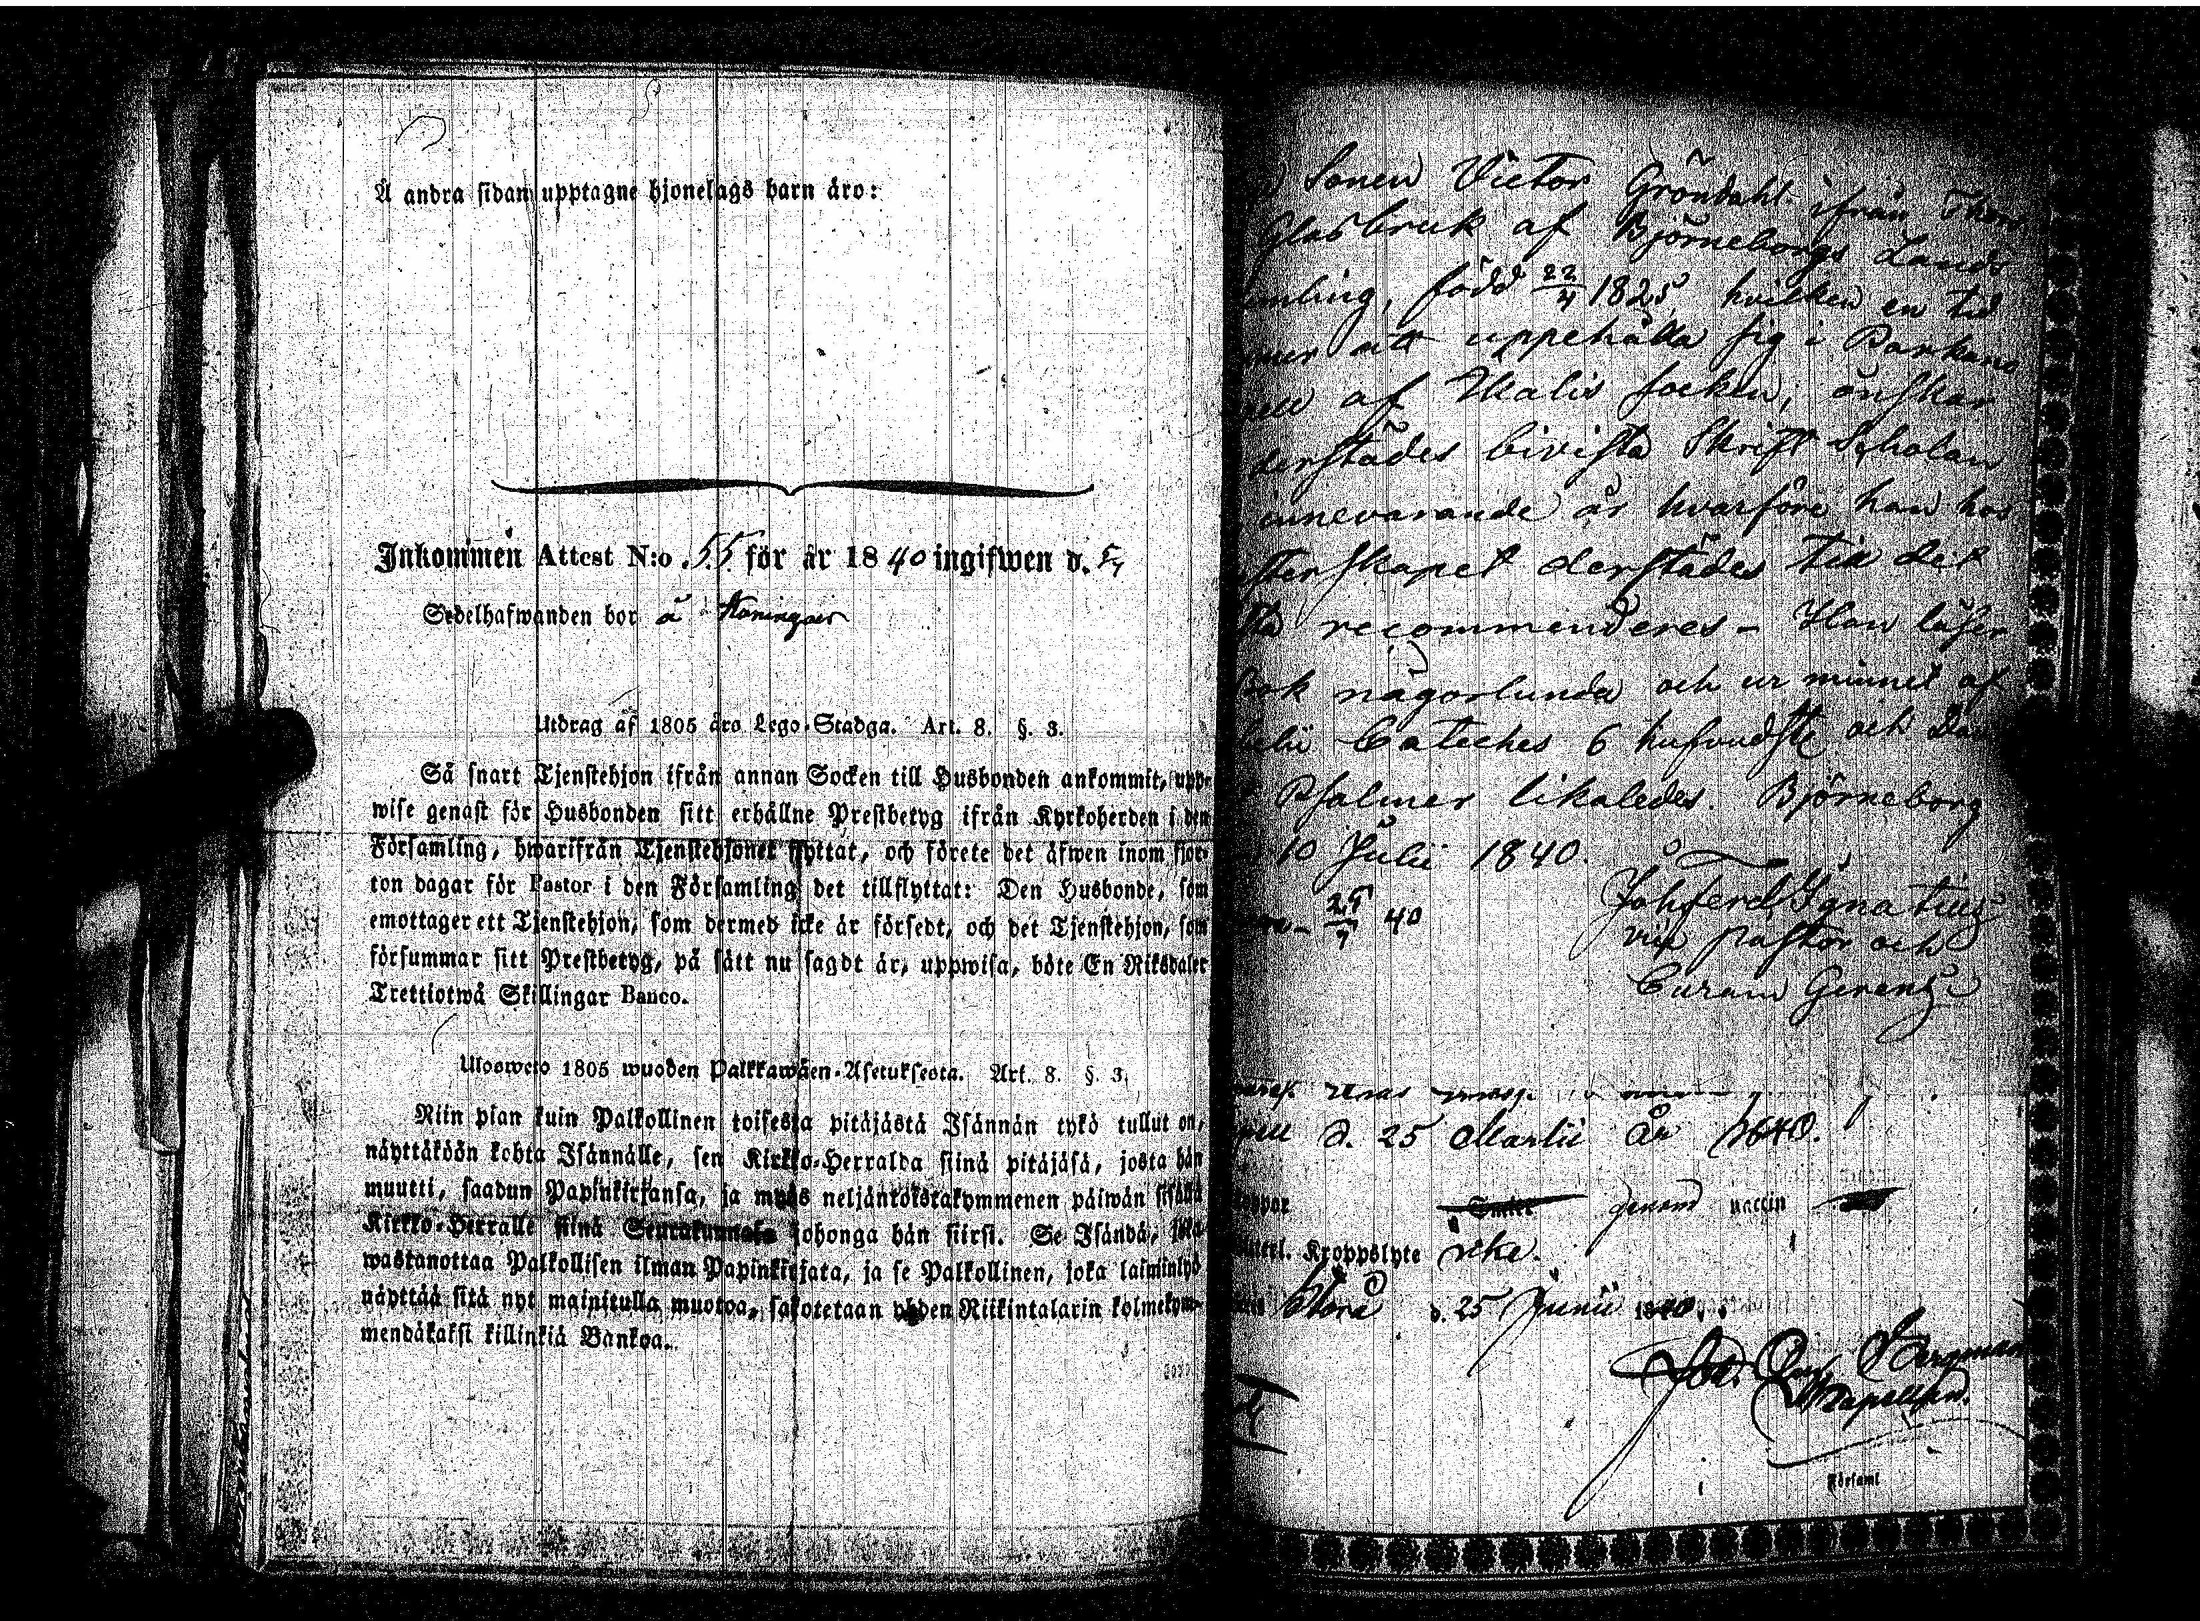 Å andra sidan upptagne hjonelags barn äro:
Inkommen Attest N:o 55 för år 1840 ingifwen d. 5/7
Sedelhafwanden bor å
Utdrag af 1805 års Lego-Stadga. Art. 8. §. 3.
Så snart Tjenstehjon ifrån annan Socken till Husbonden ankommit, upp-
wise genast för Husbonden sitt erhållne Prestbetyg ifrån Kyrkoherden i den
Församling, hwarifrån Tjenstehjonet flyttat, och förete det äfwen inom fjor-
ton dagar för Pastor i den Församling det tillflyttat: Den Husbonde, som
emottager ett Tjenstehjon, som dermed icke är försedt, och det Tjenstehjon, som
försummar sitt Prestbetyg, på sätt nu sagdt är, uppwisa, böte En Riksdaler
Trettiotwå Skillingar Banco.
Ulosweto 1805 wuoden Palkkawäen-Asetuksesta. Art. 8. §. 3.
Niin pian kuin Palkollinen toisesta pitäjästä Isännän tykö tullut on,
näyttäköön kohta Isännälle, sen Kirkko-Herralda siinä pitäjäsä, josta hän
muutti, saadun Papinkirjansa, ja myös neljäntoistakymmenen päiwän sisällä
Kirkko-Herralle siinä Seurakunnasa johonga hän siirsi. Se Isändä, joka
wastanottaa Palkollisen ilman Papinkirjata, ja se Palkollinen, joka laiminlyö
näyttää sitä nyt mainitulla muotoa, sakotetaan yhden Riikintalarin kolmekym-
mendäkaksi killinkiä Bankoa.
Sonen Victor Gröndahl ifrån
Glasbruk af Björneborgs Lands
mling, född 22/4 1825, hvilken en tid
mer att uppehålla sig i Parkano
pell af Ikalis socken, önskar
derstädes bivista Skrift Scholan
innevarande år hvarföre han hos
sterskapet derstädes till det
sta recommenderes – Han läser
bok någorlunda och ur minnet af
lii Cateches 6 hufvudstr och Dav
Psalmer likaledes. Björneborg
10 Julii 1840.
25/7 40
Joh Ferd Ignatius
vice Pastor och
Curam Gerens
pell d. 25 Martii År 1840.
koppor genom naccin
Kroppslyte icke.
Storå d. 25 Junii 1840.
Bergman
Capellan.
Församl